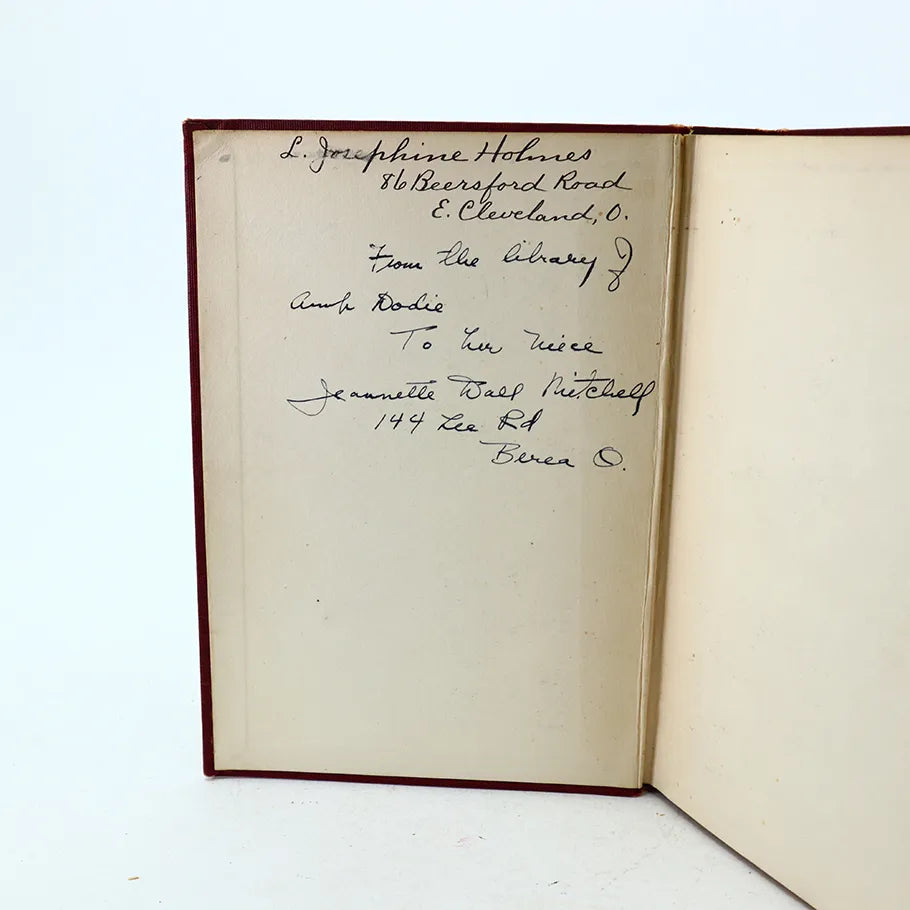 L. Josephine Holmes
86 Beersford Road
E. Cleveland, O.
From the library of
Aunt Dodie
To her niece
Jeannette Wall Mitchell
144 Lee Rd
Berea O.